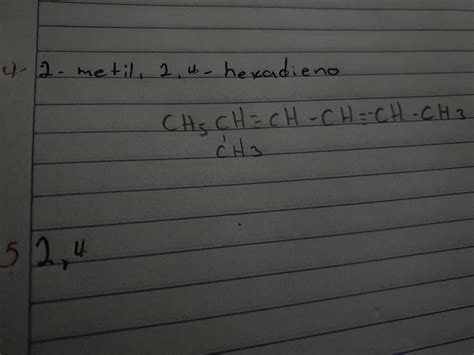 4- 2- metil, 2,4- hexadieno
CH3 CH=CH-CH=CH-CH3
CH3
5 2,4